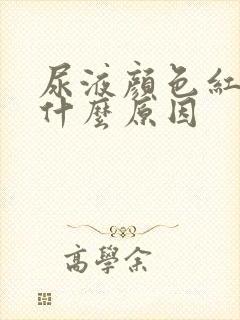 尿液顏色紅
什麼原因
高學余